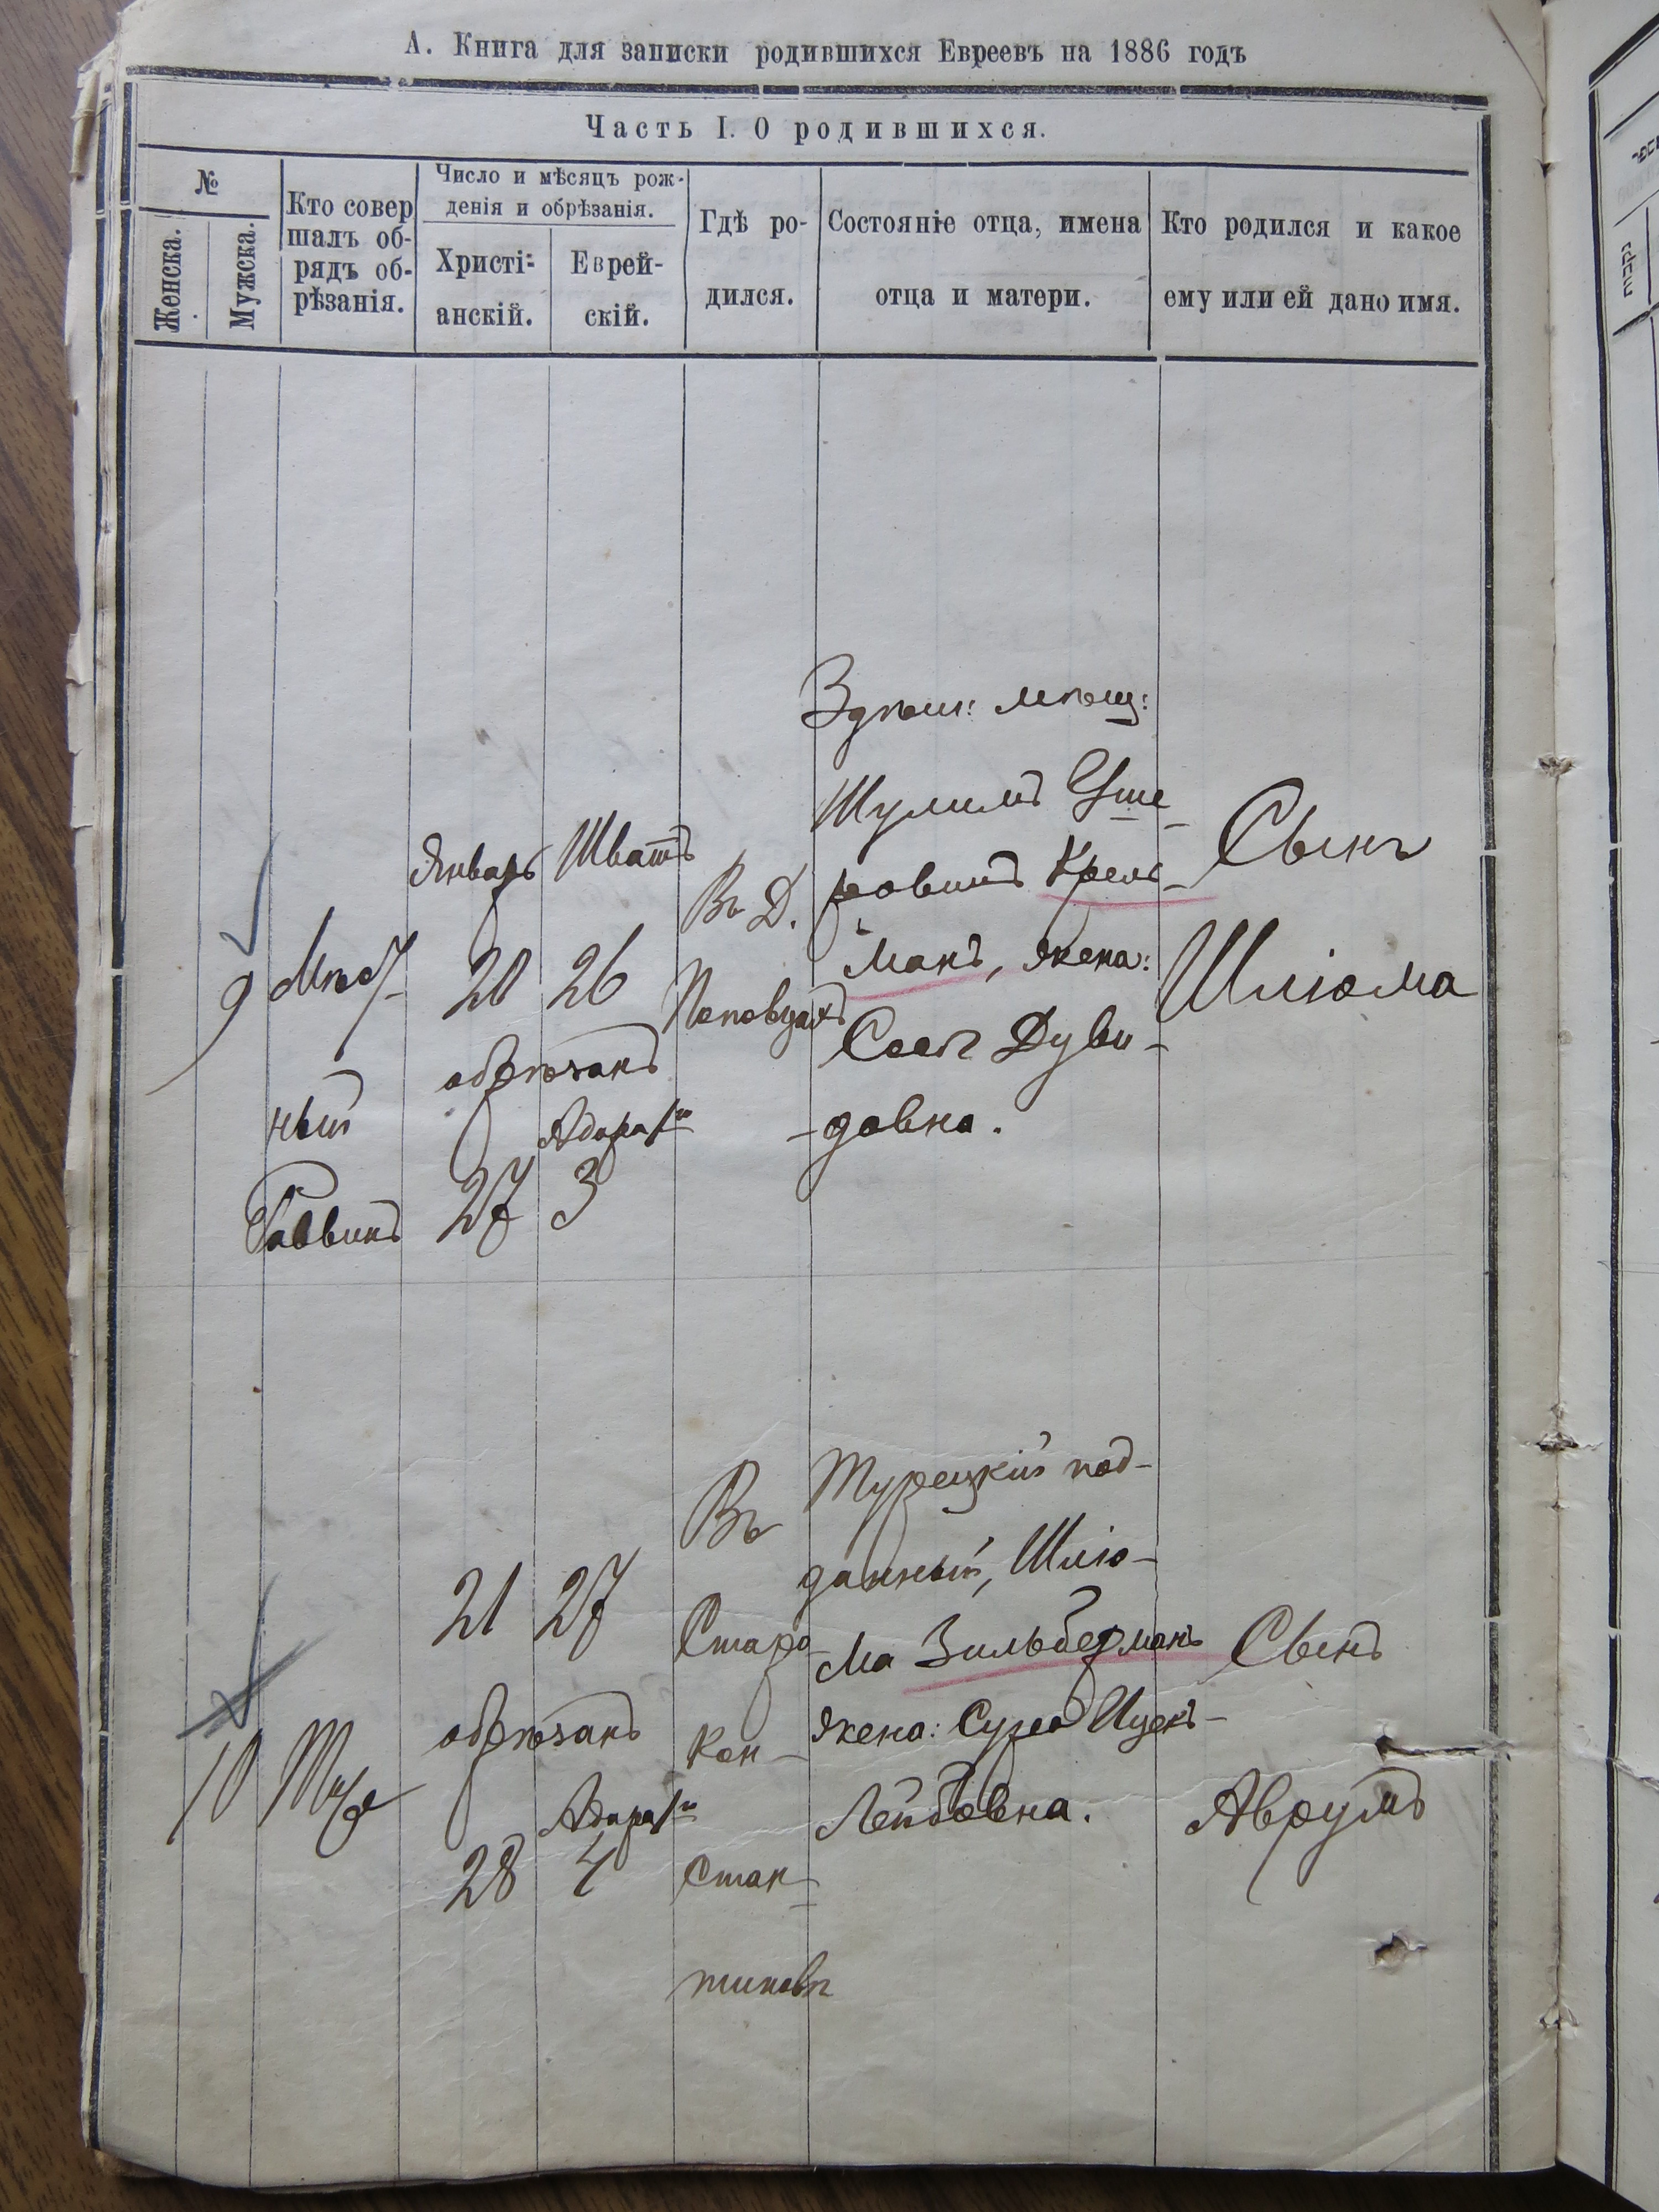 А. Книга для записки родившихся Евреевъ на 1886 годъ
Часть I. О родившихся.
№
Женска.
Мужска.
Кто совер
шалъ об-
рядъ об-
рѣзанія.
Число и мѣсяцъ рож-
денія и обрѣзанія.
Христі-
анскій.
Еврей-
скій.
Гдѣ ро-
дился.
Состояніе отца, имена
отца и матери.
Кто родился и какое
ему или ей дано имя.
9
Мѣст-
ный
Раввинъ
Январь
20
обрѣзанъ
27
Шватъ
26
Адара
3
Въ Д.
Здѣш: мѣщ:
Шулимъ Уше-
ровичъ Крель-
манъ, жена:
Сося Дуви-
довна.
Сынъ
Шлiома
10
21
обрѣзанъ
28
27
Адара
4
Въ
Старо-
кон-
стан-
тиновѣ
Турецкій под-
данный, Шлiо-
ма Зильберманъ
жена: Сура Ицекъ-
Лейбовна.
Сынъ
Аврумъ